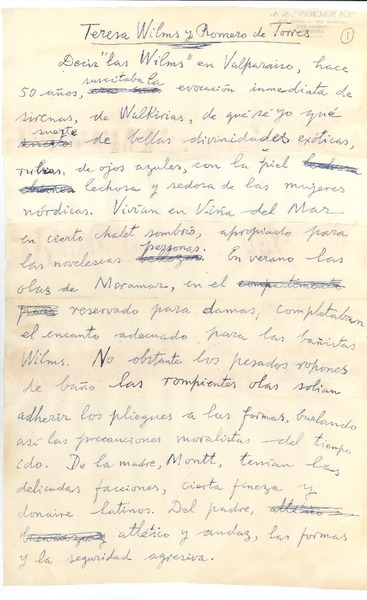 Teresa Wilms y Romero de Torres
1
Decir "las Wilms" en Valparaíso, hace
suscitaba la
50 años, evocación inmediata de
sirenas, de Walkirias, de qué sé yo qué
suerte
de bellas divinidades exóticas,
rubias, de ojos azules, con la piel
lechosa y sedosa de las mujeres
nórdicas. Vivían en Viña del Mar
en cierto chalet sombrío, apropiado para
personas.
las novelescas bellezas En verano las
olas de Miramar, en el compartimento
para reservado para damas, completaban
el encanto adecuado para las bañistas
Wilms. No obstante los pesados ropones
de baño las rompientes olas solían
adherir los pliegues a las formas, burlando
así las precauciones moralistas del tiempo
ido. De la madre, Montt, tenían las
delicadas facciones, cierta fineza y
donaire latinos. Del padre, atlético
atlético y audaz, las formas
y la seguridad agresiva.